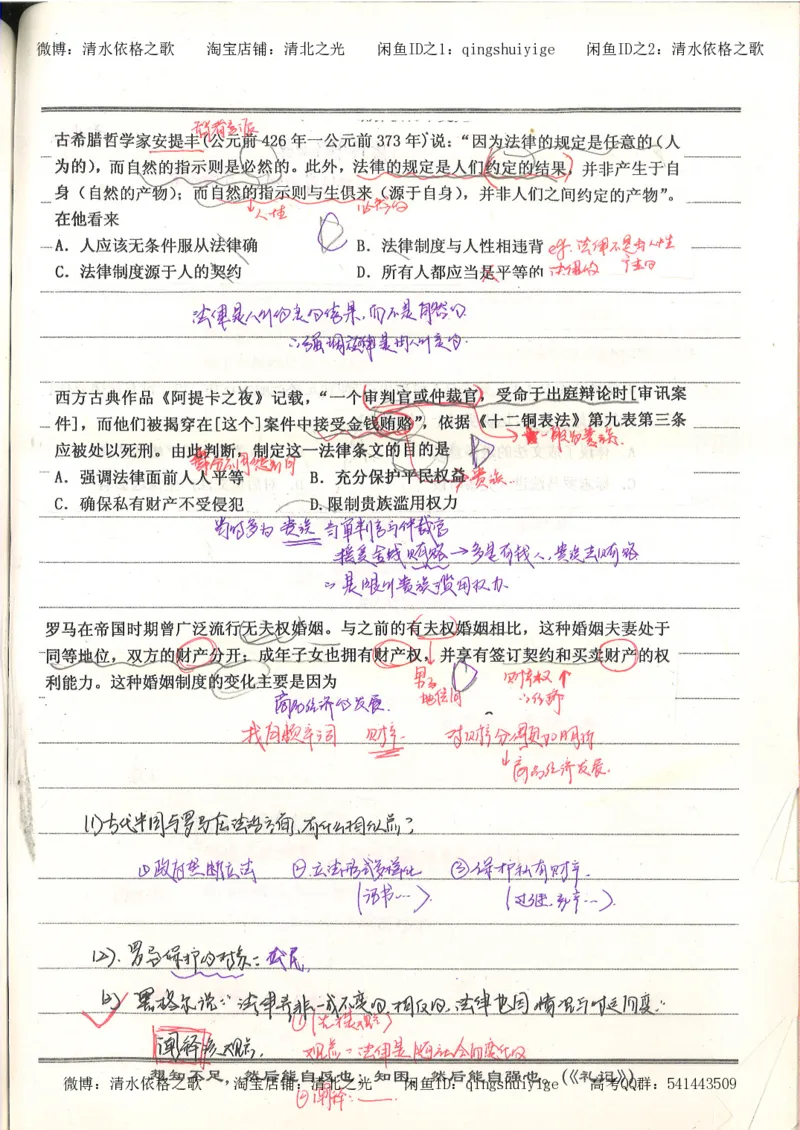 微博：清水依格之歌 淘宝店铺：清北之光 闲鱼ID之1：qingshuiyige 闲鱼ID之2：清水依格之歌
智者学派
古希腊哲学家安提丰(公元前 426 年一公元前 373 年)说：“因为法律的规定是任意的（人
为的），而自然的指示则是必然的。此外，法律的规定是人们约定的结果，并非产生于自
身（自然的产物）；而自然的指示则与生俱来（源于自身），并非人们之间约定的产物”。
↓人性 必然的
在他看来
A．人应该无条件服从法律确 B．法律制度与人性相违背 eg.法律不是由人性
C．法律制度源于人的契约 D．所有人都应当是平等的 产生的
法律是人们约定的结果，而不是自然的
∴强调法律是由人们定的.
西方古典作品《阿提卡之夜》记载，“一个审判官或仲裁官，受命于出庭辩论时[审讯案
件]，而他们被揭穿在[这个]案件中接受金钱贿赂”，依据《十二铜表法》第九表第三条
→一般为贵族.
应被处以死刑。由此判断，制定这一法律条文的目的是
A．强调法律面前人人平等 B．充分保护平民权益 贵族.
C．确保私有财产不受侵犯 D.限制贵族滥用权力
当时多为贵族当审判官与仲裁官
接受金钱贿赂→多是有钱人、贵族去贿赂
∴是限制贵族滥用权力
罗马在帝国时期曾广泛流行无夫权婚姻。与之前的有夫权婚姻相比，这种婚姻夫妻处于
同等地位，双方的财产分开；成年子女也拥有财产权，并享有签订契约和买卖财产的权
利能力。这种婚姻制度的变化主要是因为
男子地位高 财产权↑
商品经济的发展.
找高频率词 财产. 对财产分得更加明确
↓商品经济发展.
(1)古代中国与罗马在法治方面,有什么相似点?
①政府垄断立法 ②立法形式多样化 ③保护私有财产.
(诏书…). (过继.家产…).
(2).罗马保护的对象：公民.
(3)黑格尔说“法律并非一成不变的,相反的,法律也因情况与时运而变”
阐释该观点.
观点：法律是随社会而变化的
②阐释：——.
想知不足，然后能自反也；知困，然后能自强也。(《礼记》)
微博：清水依格之歌 淘宝店铺：清北之光 闲鱼ID之1：qingshuiyige 高考QQ群：541443509